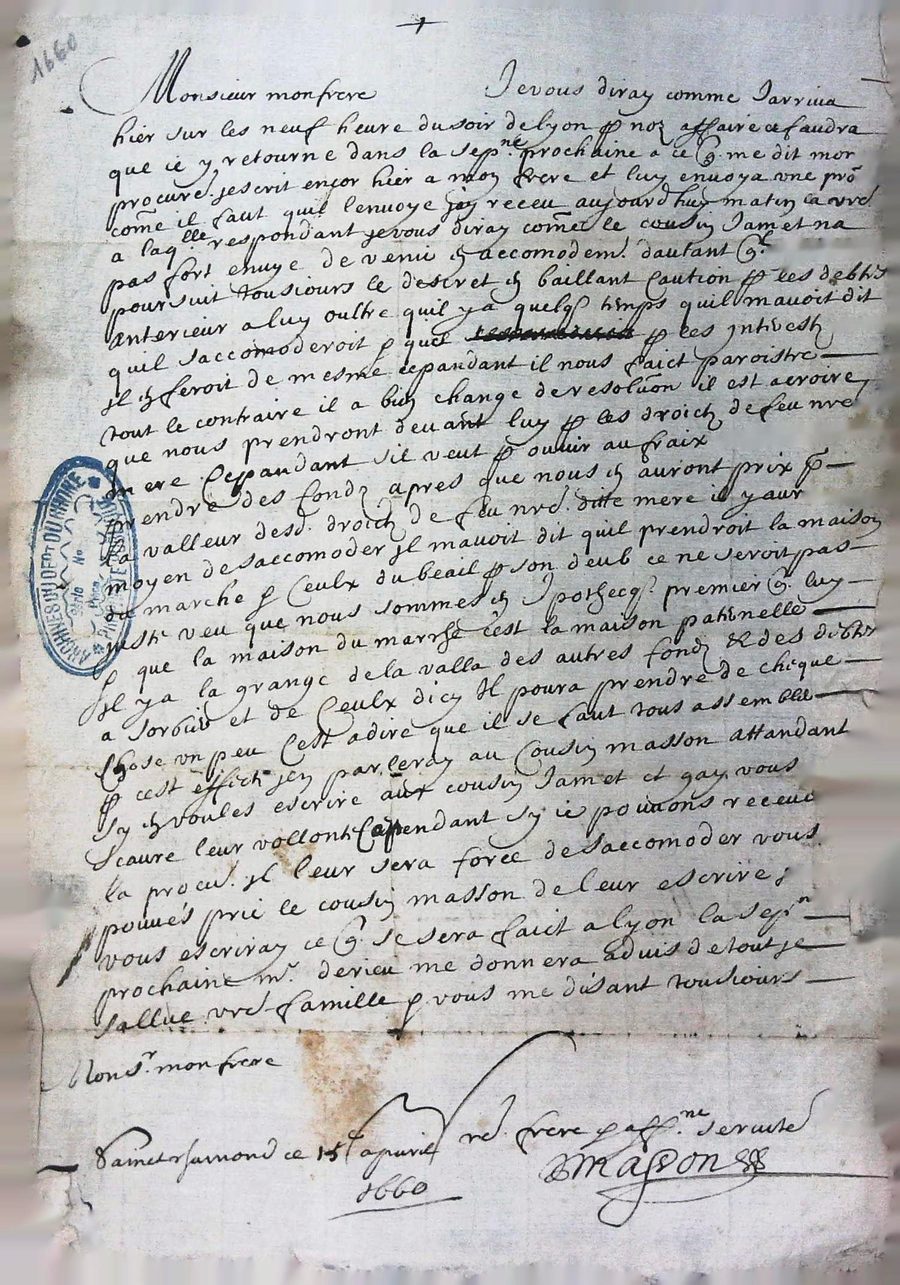 1660
Monsieur mon frere Je vous diray comme Jarriua
hier sur les neuf heure du soir de lyon p noz affaire ce faudra
que ie y retourne dans la sepne prochaine a ce q. me dit mon
procure. jescrit encor hier a mon frere et luy enuoya vne pro
come il faut quil lenuoye jay receu aujourdhuy matin la vre
a laqlle respondant je vous diray come le cousin Jamet na
pas fort enuye de venir en accomodemt. dautant q.
poursuit tousiours le decret en baillant caution p les debtes
anterieur a luy oultre quil y a quelq temps quil mauoit dit
quil saccomoderoit p que p les jntirestz
jl en feroit de mesme cepandant il nous faict paroistre
tout le contraire il a bien change de resoluon il est a croire
que nous prendront deuant luy p les droictz de feu nre
mere Cepandant sil veut p ouuir au fraix
prendre des fondz apres que nous en auront prix p
la valleur desd. droictz de feu nre. ditte mere il y aur
moyen de saccomoder jl mauoit dit quil prendroit la maison
du marche p Ceulx du beail p son deub ce ne seroit pas
juste veu que nous sommes en Jpothecq. premier q. luy
p que la maison du marche cest la maison paternelle
Jl y a la grange de la valla des autres fondz & des debtes
a Sorbier et de Ceulx dicy Jl poura prendre de cheque
Chose vn peu Cest adire que il se faut tous assemble
p cest effict jen parleray au Cousin masson attandant
sy en voules escrire aux cousin Jamet et gay vous
scaure leur vollonte Cappendant sy ie pouuons receuoir
la procu. jl leur sera force de saccomoder vous
pouués prié le cousin masson de leur escrire j
vous escriray ce q. se sera faict a lyon la sepn
prochaine mr. derieu me donnera aduis de tout je
sallue vre famille p vous me disant tousiours
Monsr. mon frere
vre. frere p affne seruite
Sainct chamond ce 15e apuril
Masson
1660
ARCHIVES DU DEPT DU RHONE